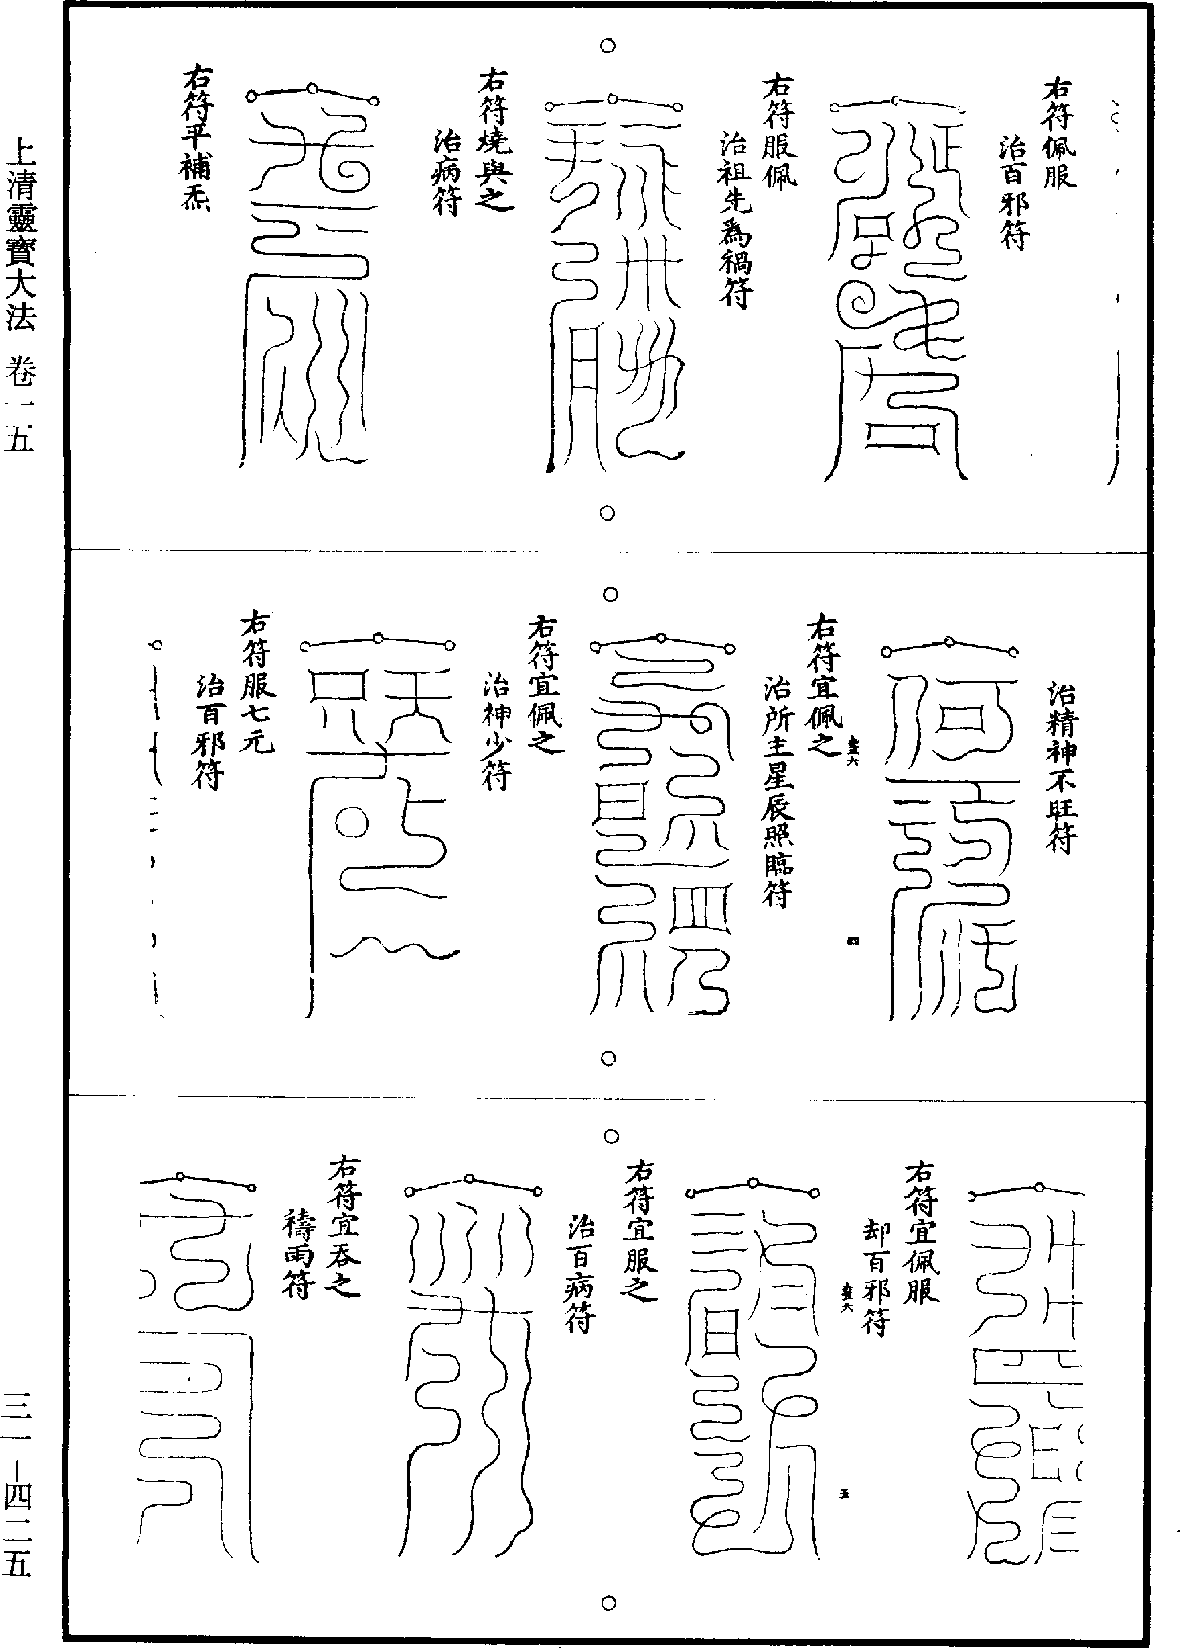 右符佩服
治百邪符
右符服佩
治祖先為禍符
右符燒與之
治病符
右符平補炁
治精神不旺符
右符宜佩之
治所主星辰照臨符
右符宜佩之
治神少符
右符服七元
治百邪符
右符宜佩服
却百邪符
右符宜服之
治百病符
右符宜吞之
禱雨符
四
五
上清靈寶大法 卷一五
三一-四二五